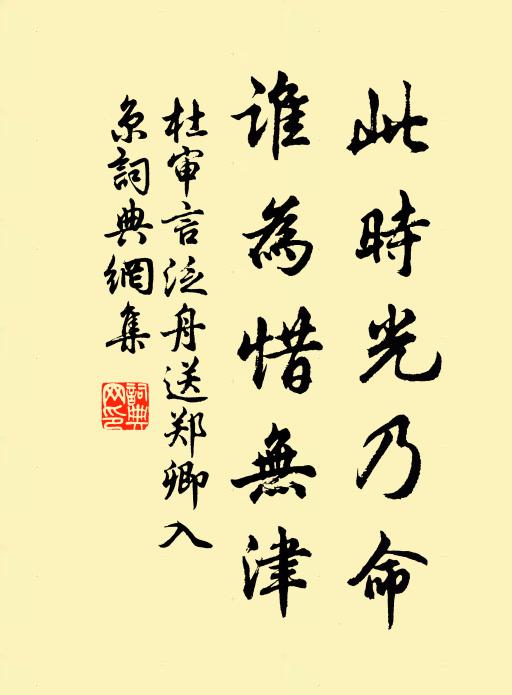 此時光乃命
誰為惜無津
杜审言泛舟送郑卿入
京詞典網集
詞典網印